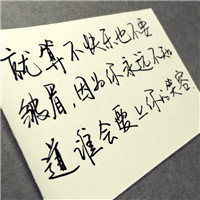 就算不快乐也不要
皱眉,因为你永远不知
道谁会爱上你的笑容